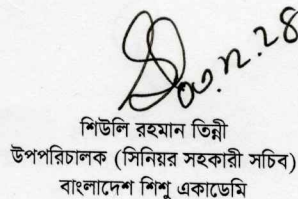 শিউলি রহমান তিন্নী
উপপরিচালক (সিনিয়র সহকারী সচিব)
বাংলাদেশ শিশু একাডেমি